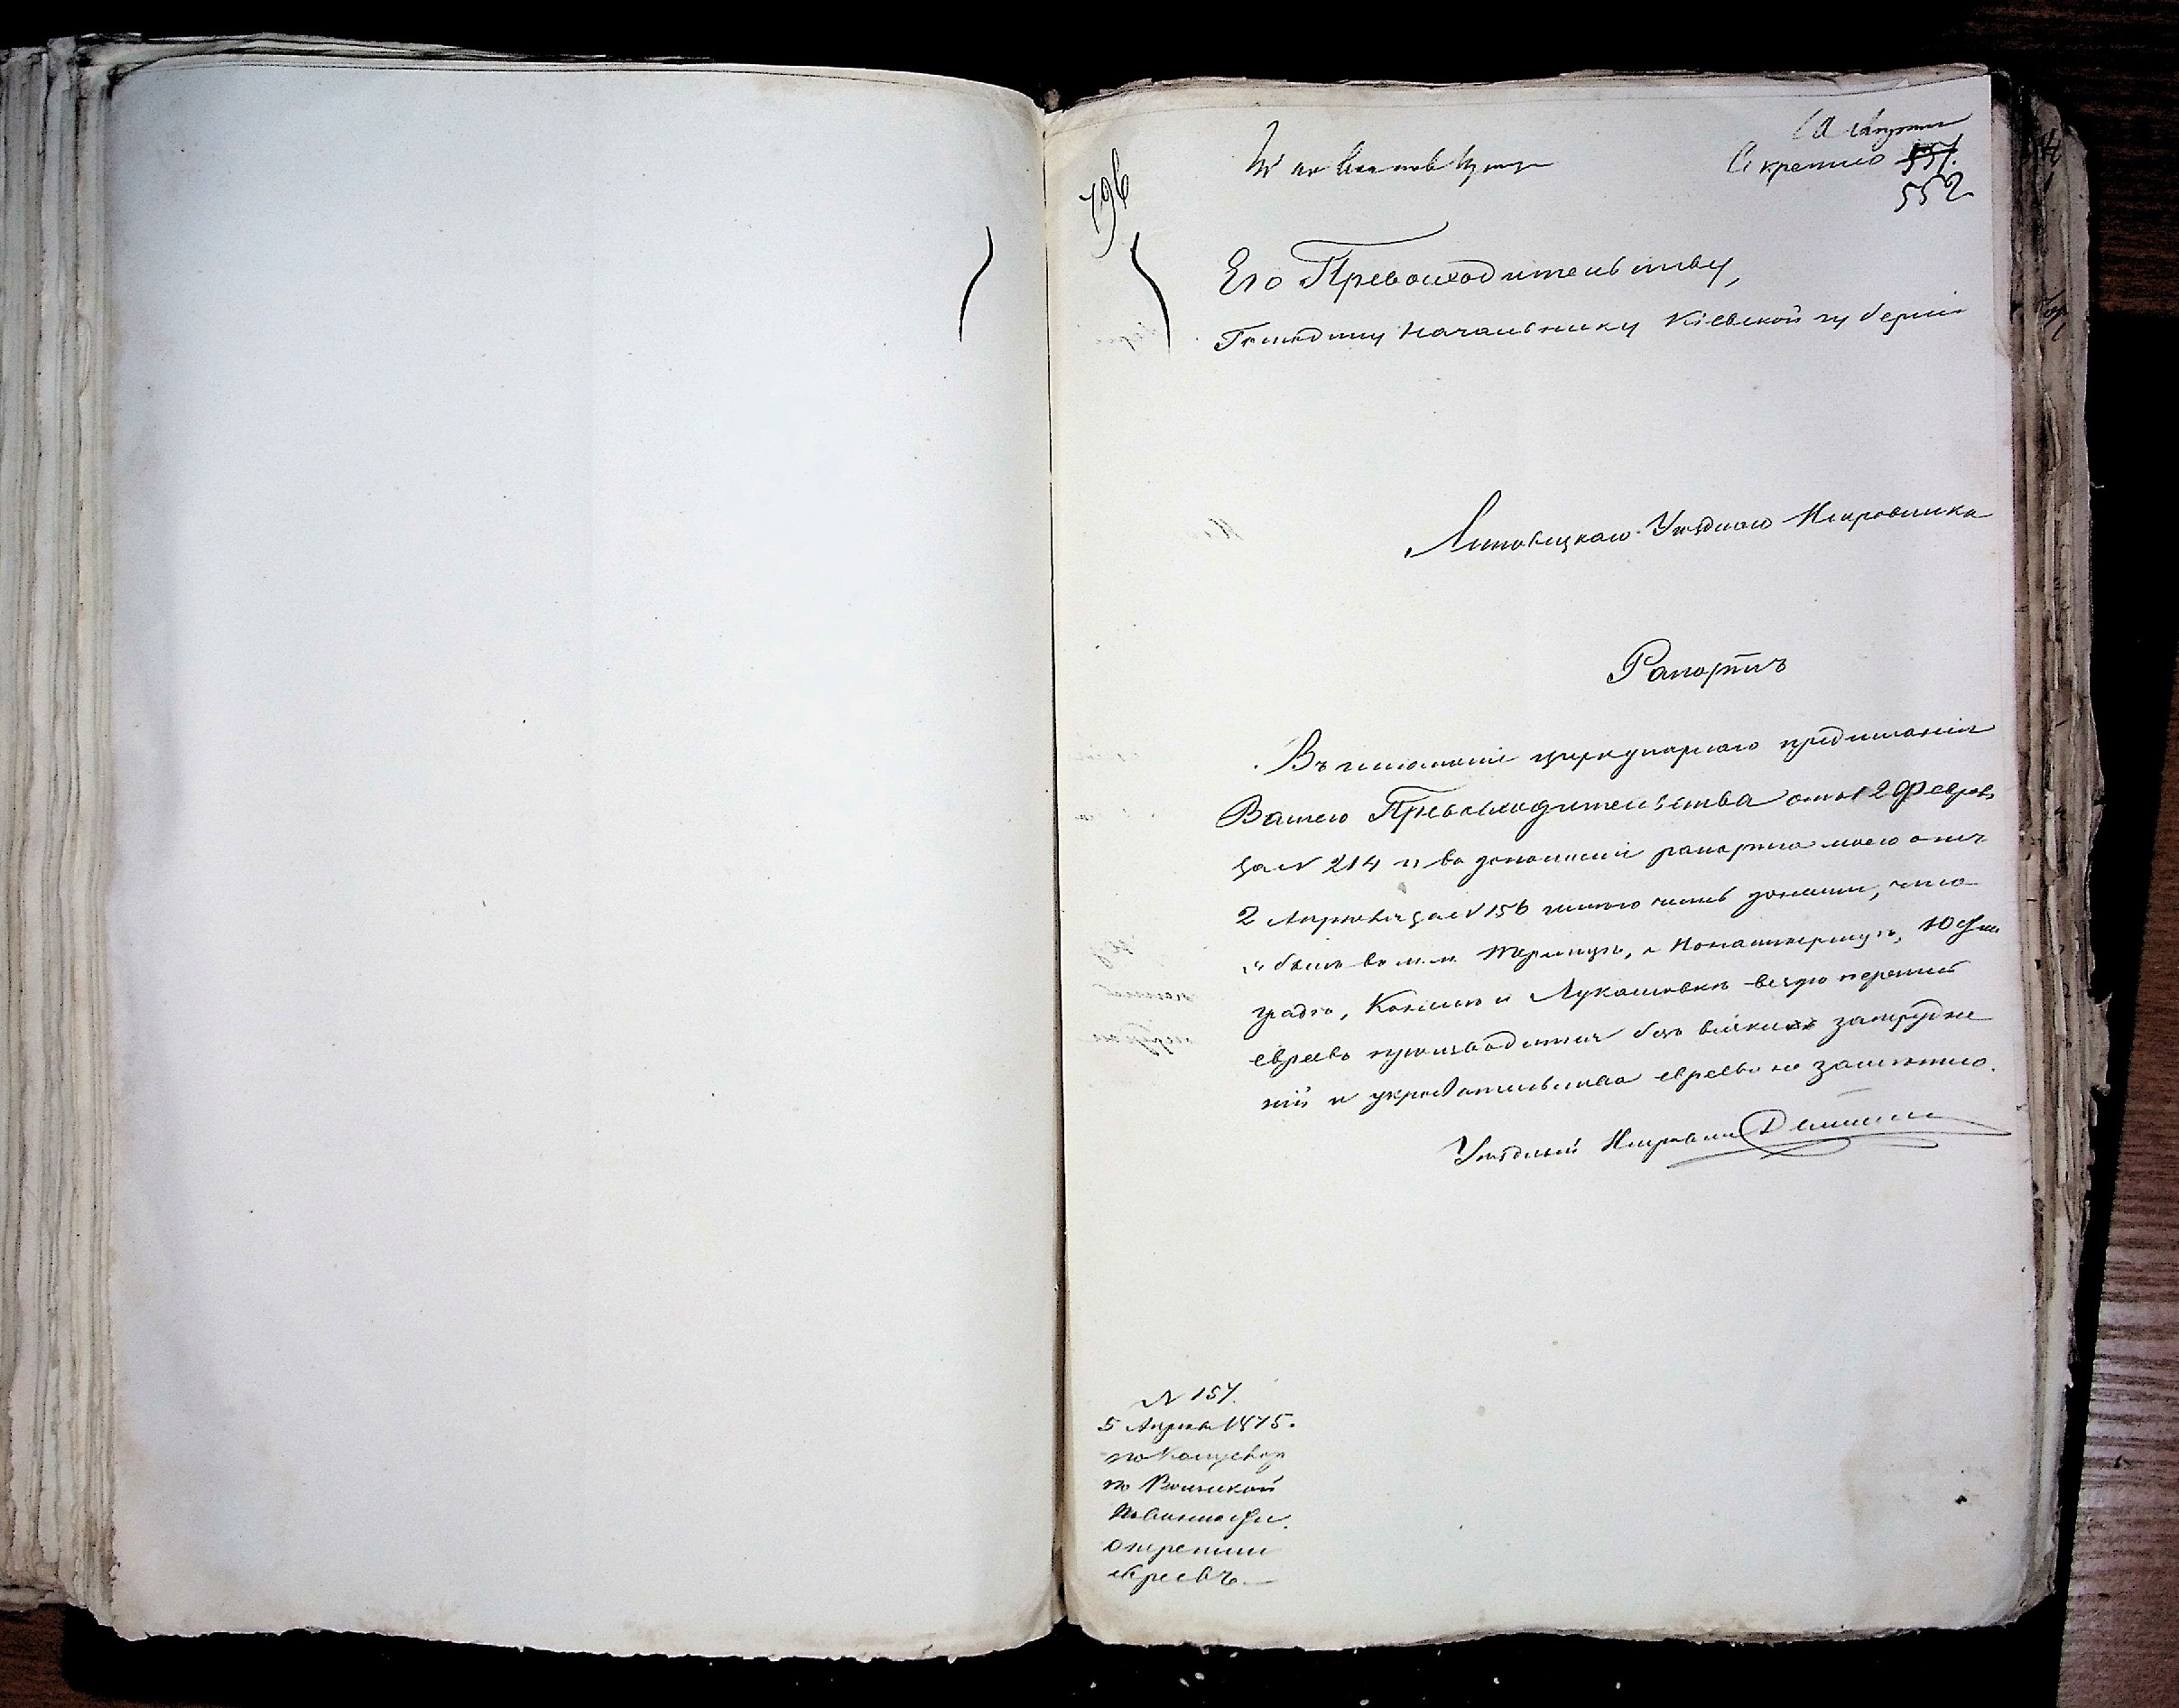 796
Секретно 551.
552
Его Превосходительству,
Господину Начальнику Кіевской губерніи
Липовецкаго Уѣзднаго Исправника
Рапортъ
Въ исполненіе циркулярнаго предписанія
Вашего Превосходительства отъ 12 Февраля
за N 214 и въ дополненіе рапорта моего отъ
2 Апрѣля за N 156 имѣю честь донести, что
въ м.м. и Монастырищѣ, Юстин
градѣ, и Лукашовкѣ перепись
евреевъ производится безъ всякихъ затрудне
ній и укрывательства евреевъ не замѣчено.
Уѣздный Исправникъ
N 157.
5 Апрѣля 1875.
по
по Воинской
Повинности.
О переписи
евреевъ